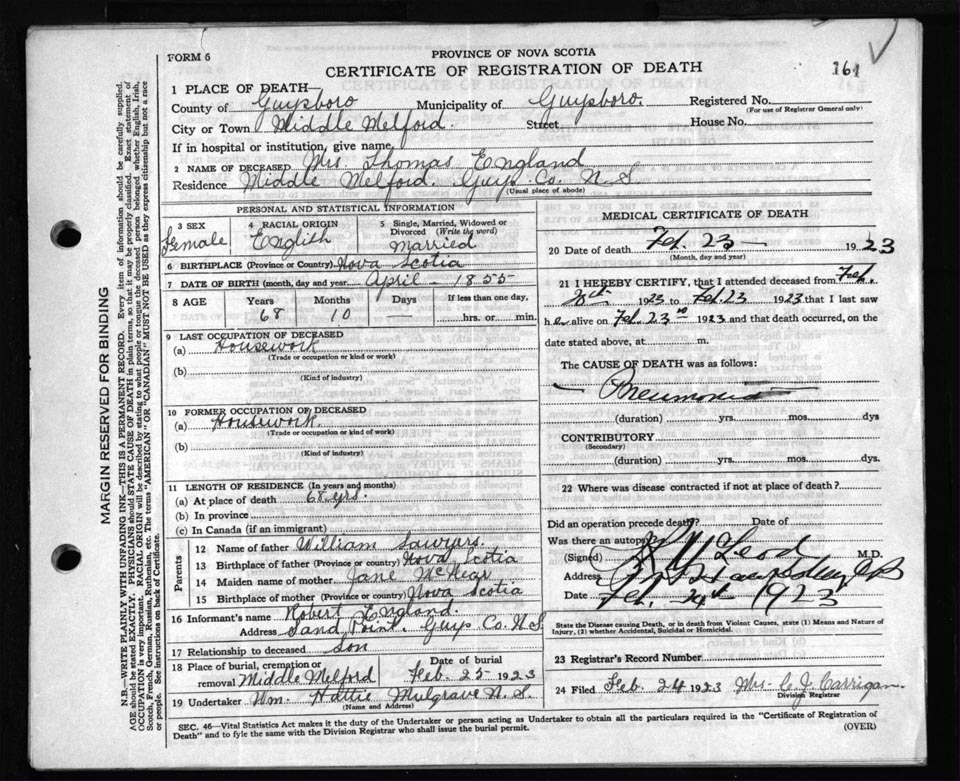 FORM 6
PROVINCE OF NOVA SCOTIA
CERTIFICATE OF REGISTRATION OF DEATH
161
1 PLACE OF DEATH—
County of Guysboro Municipality of Guysboro. Registered No.
(For use of Registrar General only)
City or Town Middle Melford. Street House No.
If in hospital or institution, give name
2 NAME OF DECEASED Mrs. Thomas England
Residence Middle Melford. Guys. Co. N.S.
(Usual place of abode)
PERSONAL AND STATISTICAL INFORMATION
3 SEX Female
4 RACIAL ORIGIN English
5 Single, Married, Widowed or Divorced (Write the word) Married
6 BIRTHPLACE (Province or Country) Nova Scotia
7 DATE OF BIRTH (month, day and year) April – 1855
8 AGE Years 68 Months 10 Days — If less than one day, hrs. or min.
9 LAST OCCUPATION OF DECEASED
(a) Housework
(Trade or occupation or kind of work)
(b)
(Kind of industry)
10 FORMER OCCUPATION OF DECEASED
(a) Housework.
(Trade or occupation or kind of work)
(b)
(Kind of industry)
11 LENGTH OF RESIDENCE (In years and months)
(a) At place of death 68 yrs.
(b) In province
(c) In Canada (if an immigrant)
Parents
12 Name of father William Sawyars.
13 Birthplace of father (Province or Country) Nova Scotia
14 Maiden name of mother Jane McNear
15 Birthplace of mother (Province or country) Nova Scotia
16 Informant's name Robert England.
Address Sand Point. Guys Co. N.S
17 Relationship to deceased Son
18 Place of burial, cremation or removal Middle Melford Date of burial Feb. 25 1923
19 Undertaker Wm. Hattie Mulgrave N.S.
(Name and Address)
MEDICAL CERTIFICATE OF DEATH
20 Date of death Feb. 23 — 1923
(Month, day and year)
21 I HEREBY CERTIFY, that I attended deceased from Feb.
1923 to Feb. 23 1923 that I last saw
her alive on Feb. 23 1923 and that death occurred, on
date stated above, at m.
The CAUSE OF DEATH was as follows:
— Pneumonia
(duration) yrs. mos. dys
CONTRIBUTORY
(Secondary)
(duration) yrs. mos. dys.
22 Where was disease contracted if not at place of death?
Did an operation precede death? Date of
Was there an autopsy
(Signed) M.D.
Address
Date Feb. 24th 1923
State the Disease causing Death, or in death from Violent Causes, state (1) Means and Nature of
Injury, (2) whether Accidental, Suicidal or Homicidal.
23 Registrar's Record Number
24 Filed Feb. 24 1923 Mrs. C. J. Carrigan.
Division Registrar
SEC. 46—Vital Statistics Act makes it the duty of the Undertaker or person acting as Undertaker to obtain all the particulars required in the "Certificate of Registration of
Death" and to fyle the same with the Division Registrar who shall issue the burial permit.
(OVER)
MARGIN RESERVED FOR BINDING
N.B.—WRITE PLAINLY WITH UNFADING INK—THIS IS A PERMANENT RECORD. Every item of information should be carefully supplied.
AGE should be stated EXACTLY. PHYSICIANS should STATE CAUSE OF DEATH in plain terms, so that it may be properly classified. Exact statement of
OCCUPATION is very important. RACIAL ORIGIN will be described by stating to what people or tongue the deceased person belonged whether English, Irish,
Scotch, French, German, Russian, Ruthenian, etc. The terms "AMERICAN" OR "CANADIAN" MUST NOT BE USED as they express citizenship but not a race
or people. See instructions on back of Certificate.